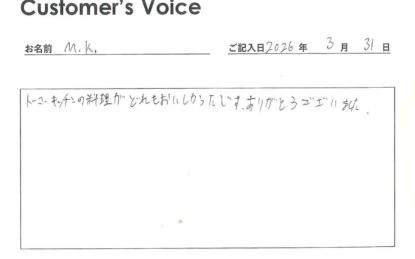 Customer's Voice
お名前 M.K. ご記入日2026年 3月 31日
トーコーキッチンの料理がどれもおいしかったです。ありがとうございました。